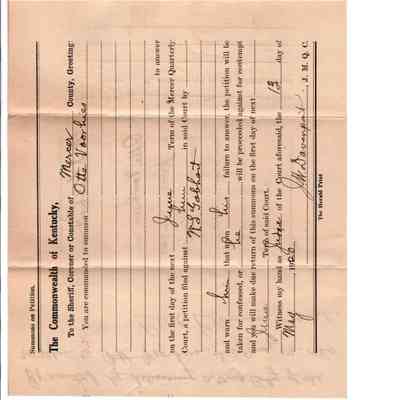 Summons on Petition.
The Commonwealth of Kentucky,
To the Sheriff, Coroner or Constable of Mercer County, Greeting:
You are commanded to summon Otto Voorhies
to answer
on the first day of the next June Term of the Mercer Quarterly
Court, a petition filed against him in said Court by
N S Gabhart
and warn him that upon his failure to answer, the petition will be
taken for confessed, or he will be proceeded against for contempt
and you will make due return of this summons on the first day of next
June Term of said Court.
Witness my hand as Judge of the Court aforesaid, the 13 day of
May 1926
J. W. Davenport J. M. Q. C.
The Herald Print